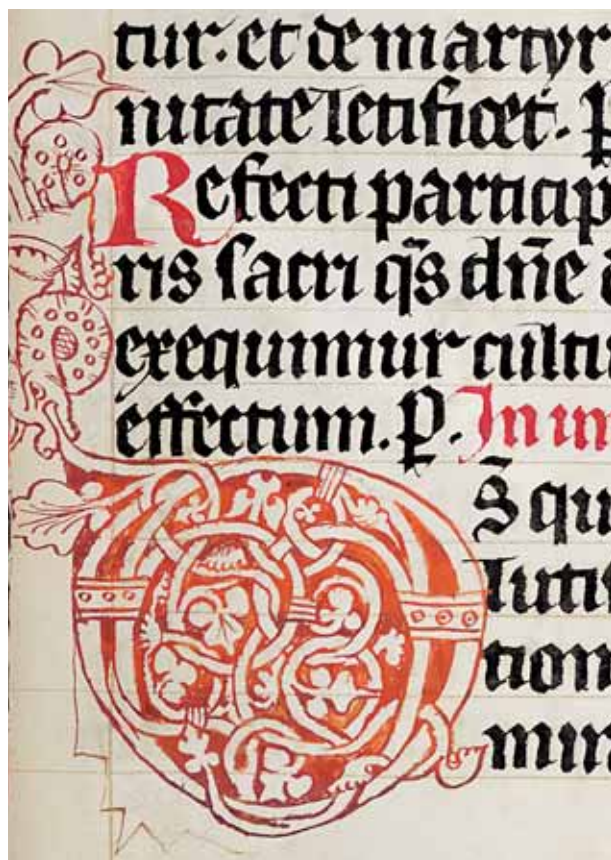 tur. et de martyr
nitate letificet. P
Refecti particip
ris sacri q̄s dn̄e
exequimur cultu
effectum. P. In im
D s̄ qui
lutis
tion
min